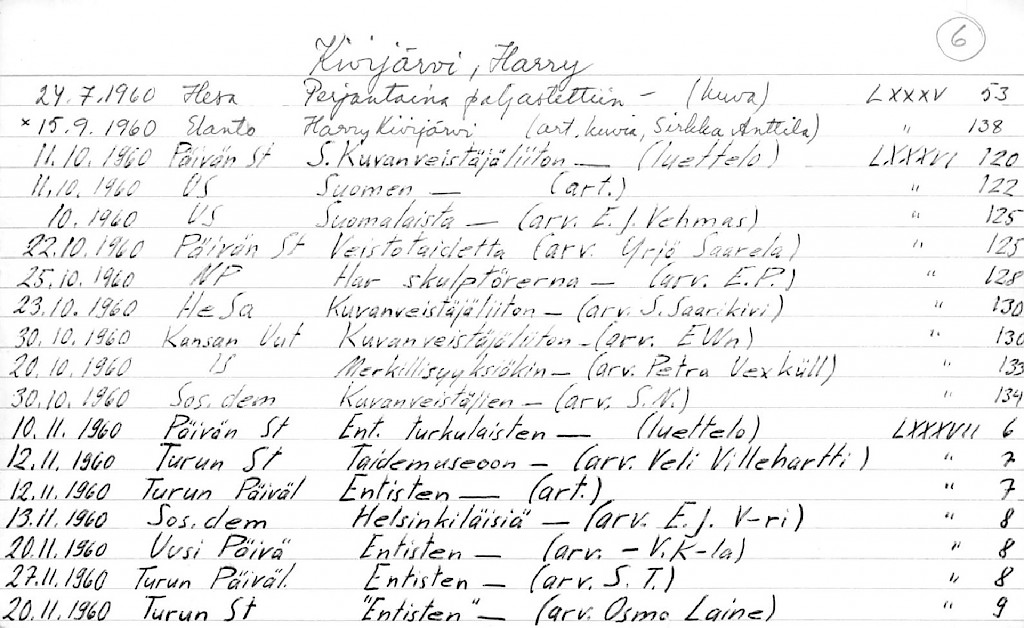 6
Kivijärvi, Harry
24.7.1960 Hesa Perjantaina paljastettiin - (kuva) LXXXV 53
× 15.9.1960 Elanto Harry Kivijärvi (art. kuvia, Sirkka Anttila) " 138
11.10.1960 Päivän St S. Kuvanveistäjäliiton — (luettelo) LXXXVI 120
11.10.1960 US Suomen — (art.) " 122
10.1960 US Suomalaista — (arv. E.J. Vehmas) " 125
22.10.1960 Päivän St Veistotaidetta (arv. Yrjö Saarela) " 125
25.10.1960 NP Har skulptörerna — (arv. E.P.) " 128
23.10.1960 HeSa Kuvanveistäjäliiton — (arv. S. Saarikivi) " 130
30.10.1960 Kansan Uut Kuvanveistäjäliiton - (arv. EWn) " 130
20.10.1960 IS Merkillisyyksiäkin — (arv. Petra Uexküll) " 133
30.10.1960 Sos.dem Kuvanveistäjien — (arv. S.N.) " 134
10.11.1960 Päivän St Ent. turkulaisten — (luettelo) LXXXVII 6
12.11.1960 Turun St Taidemuseoon — (arv. Veli Villehartti) " 7
12.11.1960 Turun Päiväl Entisten — (art.) " 7
13.11.1960 Sos.dem Helsinkiläisiä — (arv. E.J. V-ri) " 8
20.11.1960 Uusi Päivä Entisten — (arv. - V.K-la) " 8
27.11.1960 Turun Päiväl. Entisten — (arv. S.T.) " 8
20.11.1960 Turun St "Entisten" — (arv. Osmo Laine) " 9